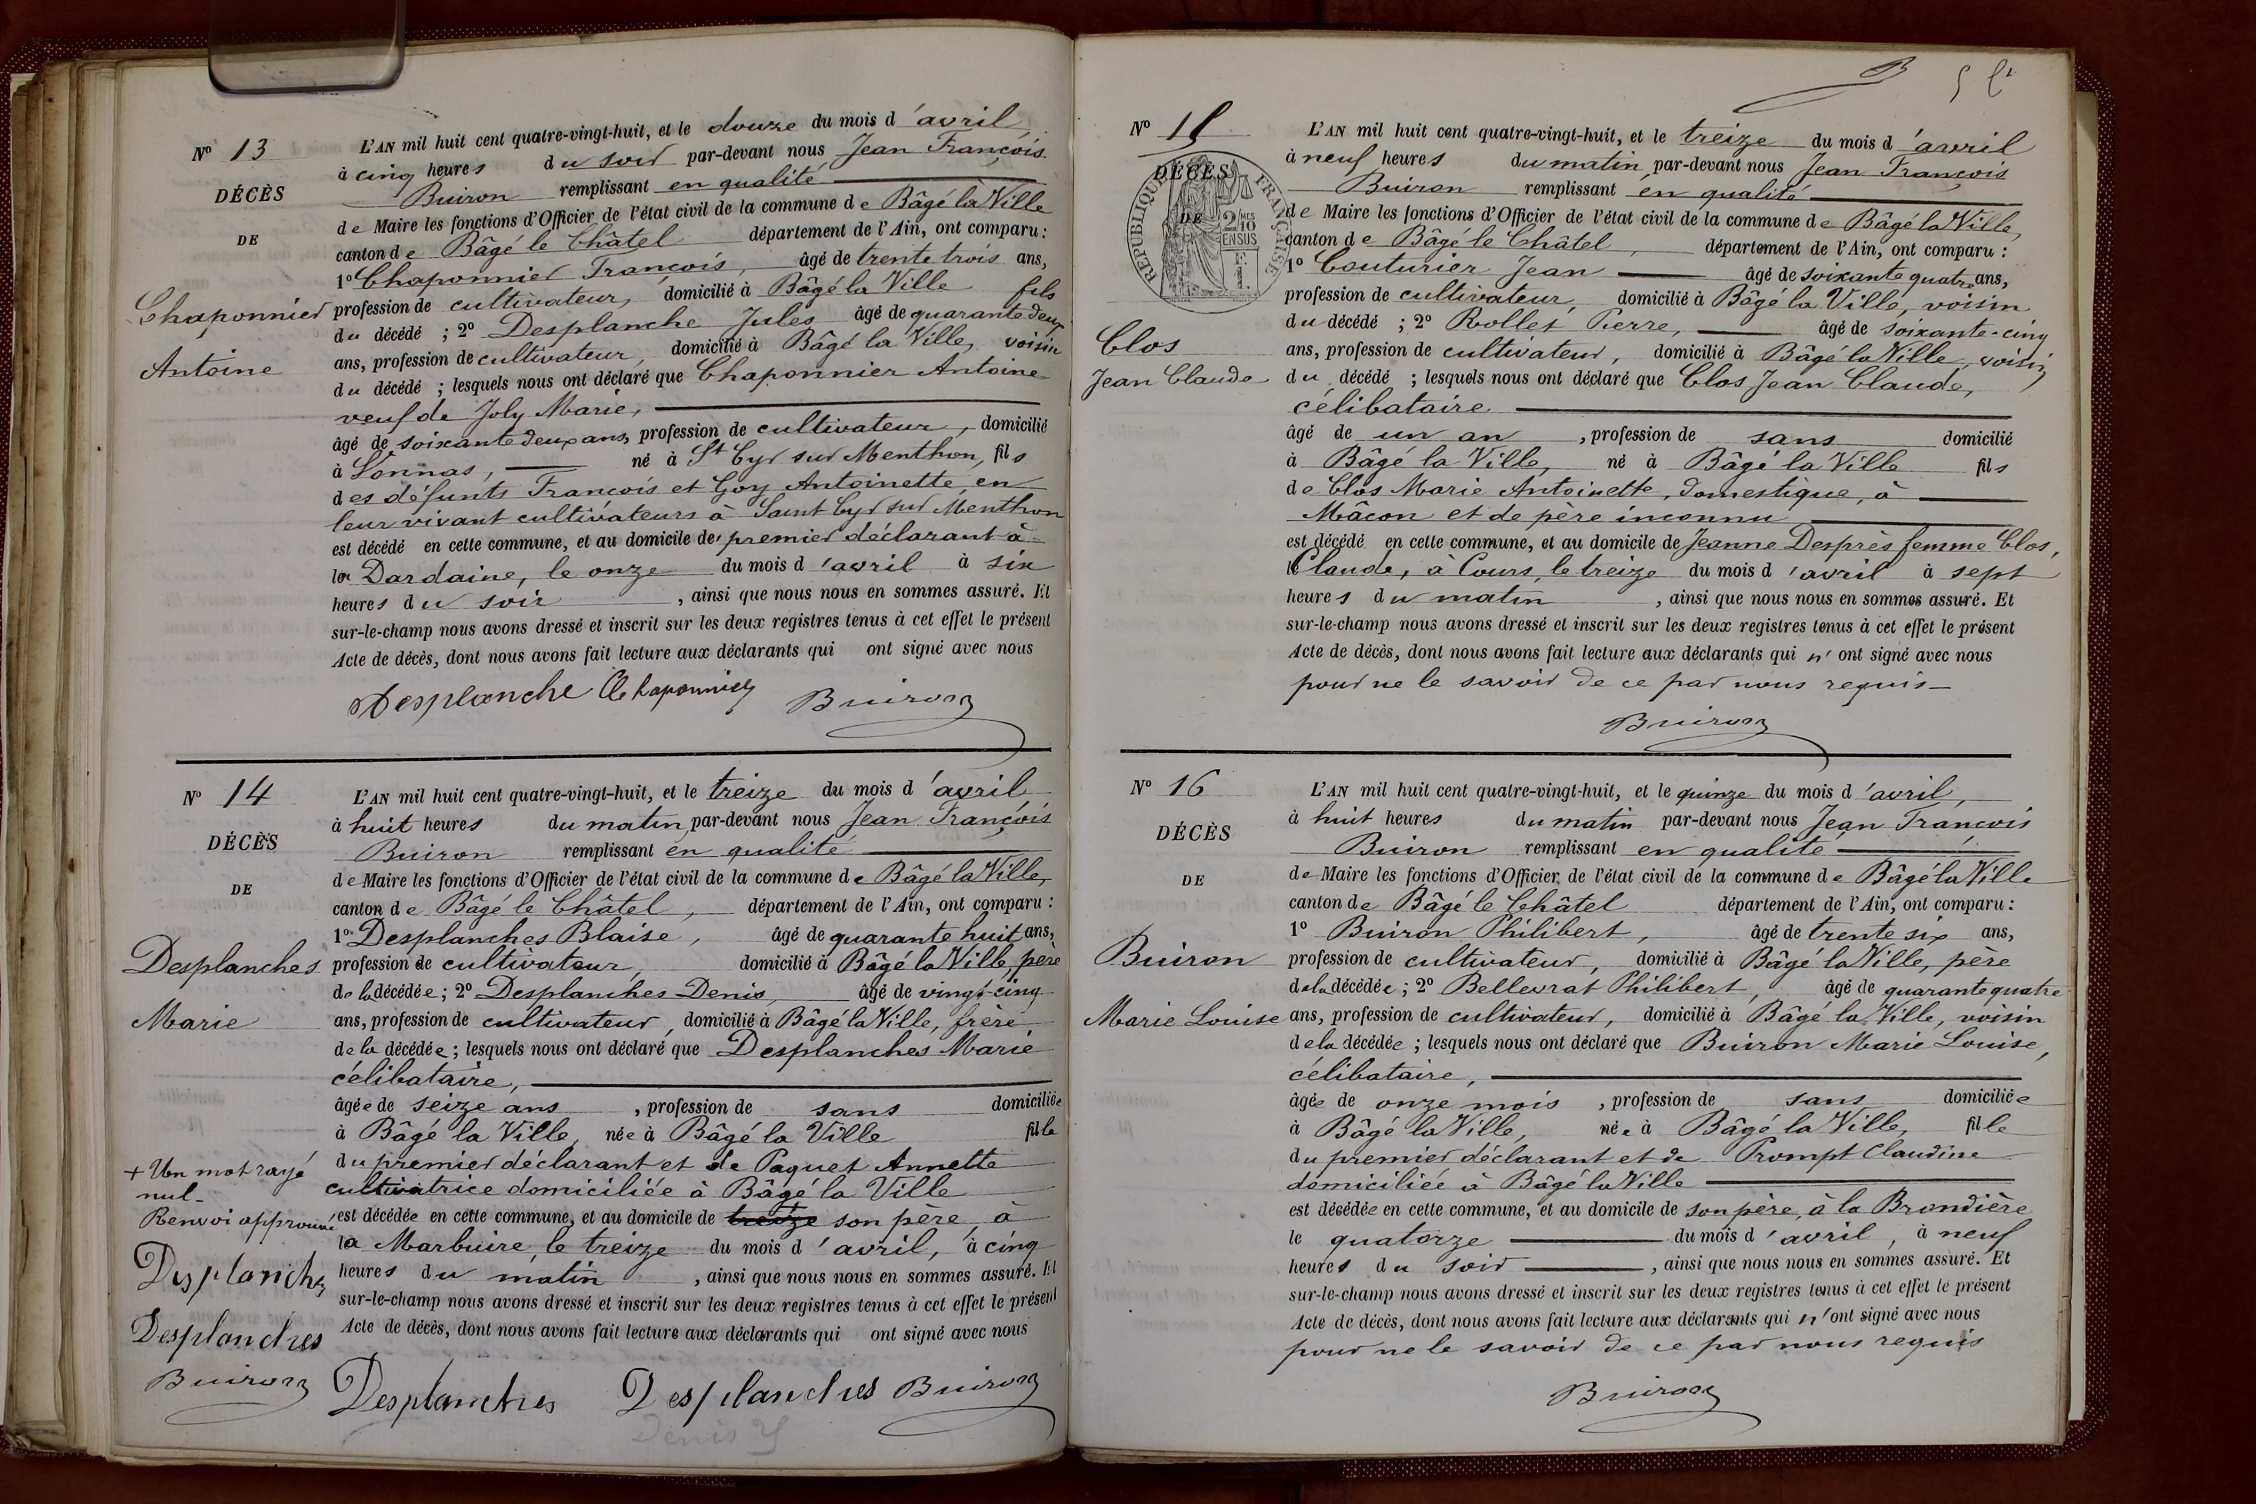 N° 13
DÉCÈS
DE
Chaponnier
Antoine
L'AN mil huit cent quatre-vingt-huit, et le douze du mois d'avril
à cinq heures du soir par-devant nous Jean François
Buiron remplissant en qualité
de Maire les fonctions d'Officier de l'état civil de la commune de Bâgé la Ville
canton de Bâgé le Châtel département de l'Ain, ont comparu :
1° Chaponnier François, âgé de trente trois ans,
profession de cultivateur, domicilié à Bâgé la Ville fils
du décédé ; 2° Desplanche Jules âgé de quarante deux
ans, profession de cultivateur, domicilié à Bâgé la Ville, voisin
du décédé ; lesquels nous ont déclaré que Chaponnier Antoine
veuf de Joly Marie,
âgé de soixante deux ans, profession de cultivateur, domicilié
à Lonnas, né à St Cyr sur Menthon, fils
des défunts François et Goy Antoinette, en
leur vivant cultivateurs à Saint Cyr sur Menthon
est décédé en cette commune, et au domicile de premier déclarant à
la Dardaine, le onze du mois d'avril à six
heures du soir, ainsi que nous nous en sommes assuré. Et
sur-le-champ nous avons dressé et inscrit sur les deux registres tenus à cet effet le présent
Acte de décès, dont nous avons fait lecture aux déclarants qui ont signé avec nous
Desplanche Chaponnier Buiron
N° 14
DÉCÈS
DE
Desplanches
Marie
L'AN mil huit cent quatre-vingt-huit, et le treize du mois d'avril
à huit heures du matin, par-devant nous Jean François
Buiron remplissant en qualité
de Maire les fonctions d'Officier de l'état civil de la commune de Bâgé la Ville,
canton de Bâgé le Châtel, département de l'Ain, ont comparu :
1° Desplanches Blaise, âgé de quarante huit ans,
profession de cultivateur, domicilié à Bâgé la Ville, père
de la décédée ; 2° Desplanches Denis, âgé de vingt-cinq
ans, profession de cultivateur, domicilié à Bâgé la Ville, frère
de la décédée ; lesquels nous ont déclaré que Desplanches Marie
célibataire,
âgée de seize ans, profession de sans domiciliée
à Bâgé la Ville, née à Bâgé la Ville fille
du premier déclarant et de Paquet Annette
cultivatrice domiciliée à Bâgé la Ville
est décédée en cette commune, et au domicile de treize son père, à
la Marbuire, le treize du mois d'avril, à cinq
heures du matin, ainsi que nous nous en sommes assuré. Et
sur-le-champ nous avons dressé et inscrit sur les deux registres tenus à cet effet le présent
Acte de décès, dont nous avons fait lecture aux déclarants qui ont signé avec nous
+ Un mot rayé
nul-
Renvoi approuvé
Desplanches
Desplanches
Buiron
Desplanches Desplanches Buiron
Denis
N° 15
DÉCÈS
DE
RÉPUBLIQUE FRANÇAISE
2/10 EN SUS
Clos
Jean Claude
L'AN mil huit cent quatre-vingt-huit, et le treize du mois d'avril
à neuf heures du matin, par-devant nous Jean François
Buiron remplissant en qualité
de Maire les fonctions d'Officier de l'état civil de la commune de Bâgé la Ville,
canton de Bâgé le Châtel, département de l'Ain, ont comparu :
1° Couturier Jean âgé de soixante quatre ans,
profession de cultivateur, domicilié à Bâgé la Ville, voisin
du décédé ; 2° Rollet Pierre, âgé de soixante-cinq
ans, profession de cultivateur, domicilié à Bâgé la Ville, voisin
du décédé ; lesquels nous ont déclaré que Clos Jean Claude,
célibataire
âgé de un an, profession de sans domicilié
à Bâgé la Ville, né à Bâgé la Ville fils
de Clos Marie Antoinette, domestique, à
Mâcon et de père inconnu
est décédé en cette commune, et au domicile de Jeanne Desprès femme Clos,
Claude, à Cours, le treize du mois d'avril à sept
heures du matin, ainsi que nous nous en sommes assuré. Et
sur-le-champ nous avons dressé et inscrit sur les deux registres tenus à cet effet le présent
Acte de décès, dont nous avons fait lecture aux déclarants qui n'ont signé avec nous
pour ne le savoir de ce par nous requis-
Buiron
N° 16
DÉCÈS
DE
Buiron
Marie Louise
L'AN mil huit cent quatre-vingt-huit, et le quinze du mois d'avril,
à huit heures du matin par-devant nous Jean François
Buiron remplissant en qualité
de Maire les fonctions d'Officier de l'état civil de la commune de Bâgé la Ville
canton de Bâgé le Châtel département de l'Ain, ont comparu :
1° Buiron Philibert, âgé de trente six ans,
profession de cultivateur, domicilié à Bâgé la Ville, père
de la décédée ; 2° Bellevrat Philibert, âgé de quarante quatre
ans, profession de cultivateur, domicilié à Bâgé la Ville, voisin
de la décédée ; lesquels nous ont déclaré que Buiron Marie Louise,
célibataire,
âgée de onze mois, profession de sans domiciliée
à Bâgé la Ville, née à Bâgé la Ville, fille
du premier déclarant et de Prompt Claudine
domiciliée à Bâgé la Ville
est décédée en cette commune, et au domicile de son père, à la Brondière
le quatorze du mois d'avril, à neuf
heures du soir, ainsi que nous nous en sommes assuré. Et
sur-le-champ nous avons dressé et inscrit sur les deux registres tenus à cet effet le présent
Acte de décès, dont nous avons fait lecture aux déclarants qui n'ont signé avec nous
pour ne le savoir de ce par nous requis
Buiron